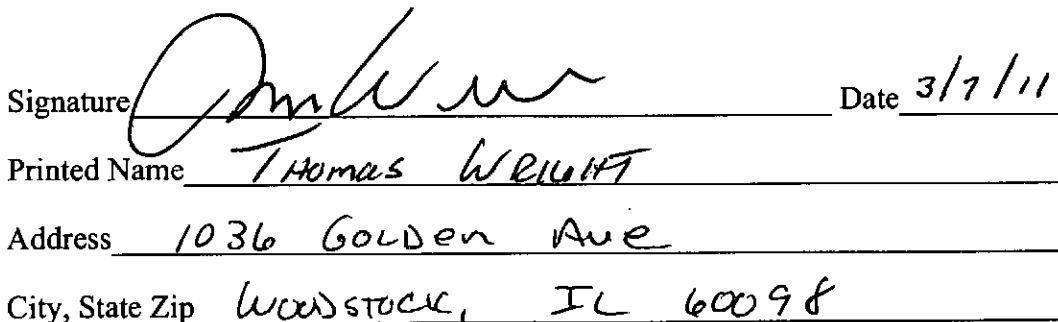 Signature Date 3/7/11
Printed Name Thomas Wright
Address 1036 Golden Ave
City, State Zip Woodstock, IL 60098